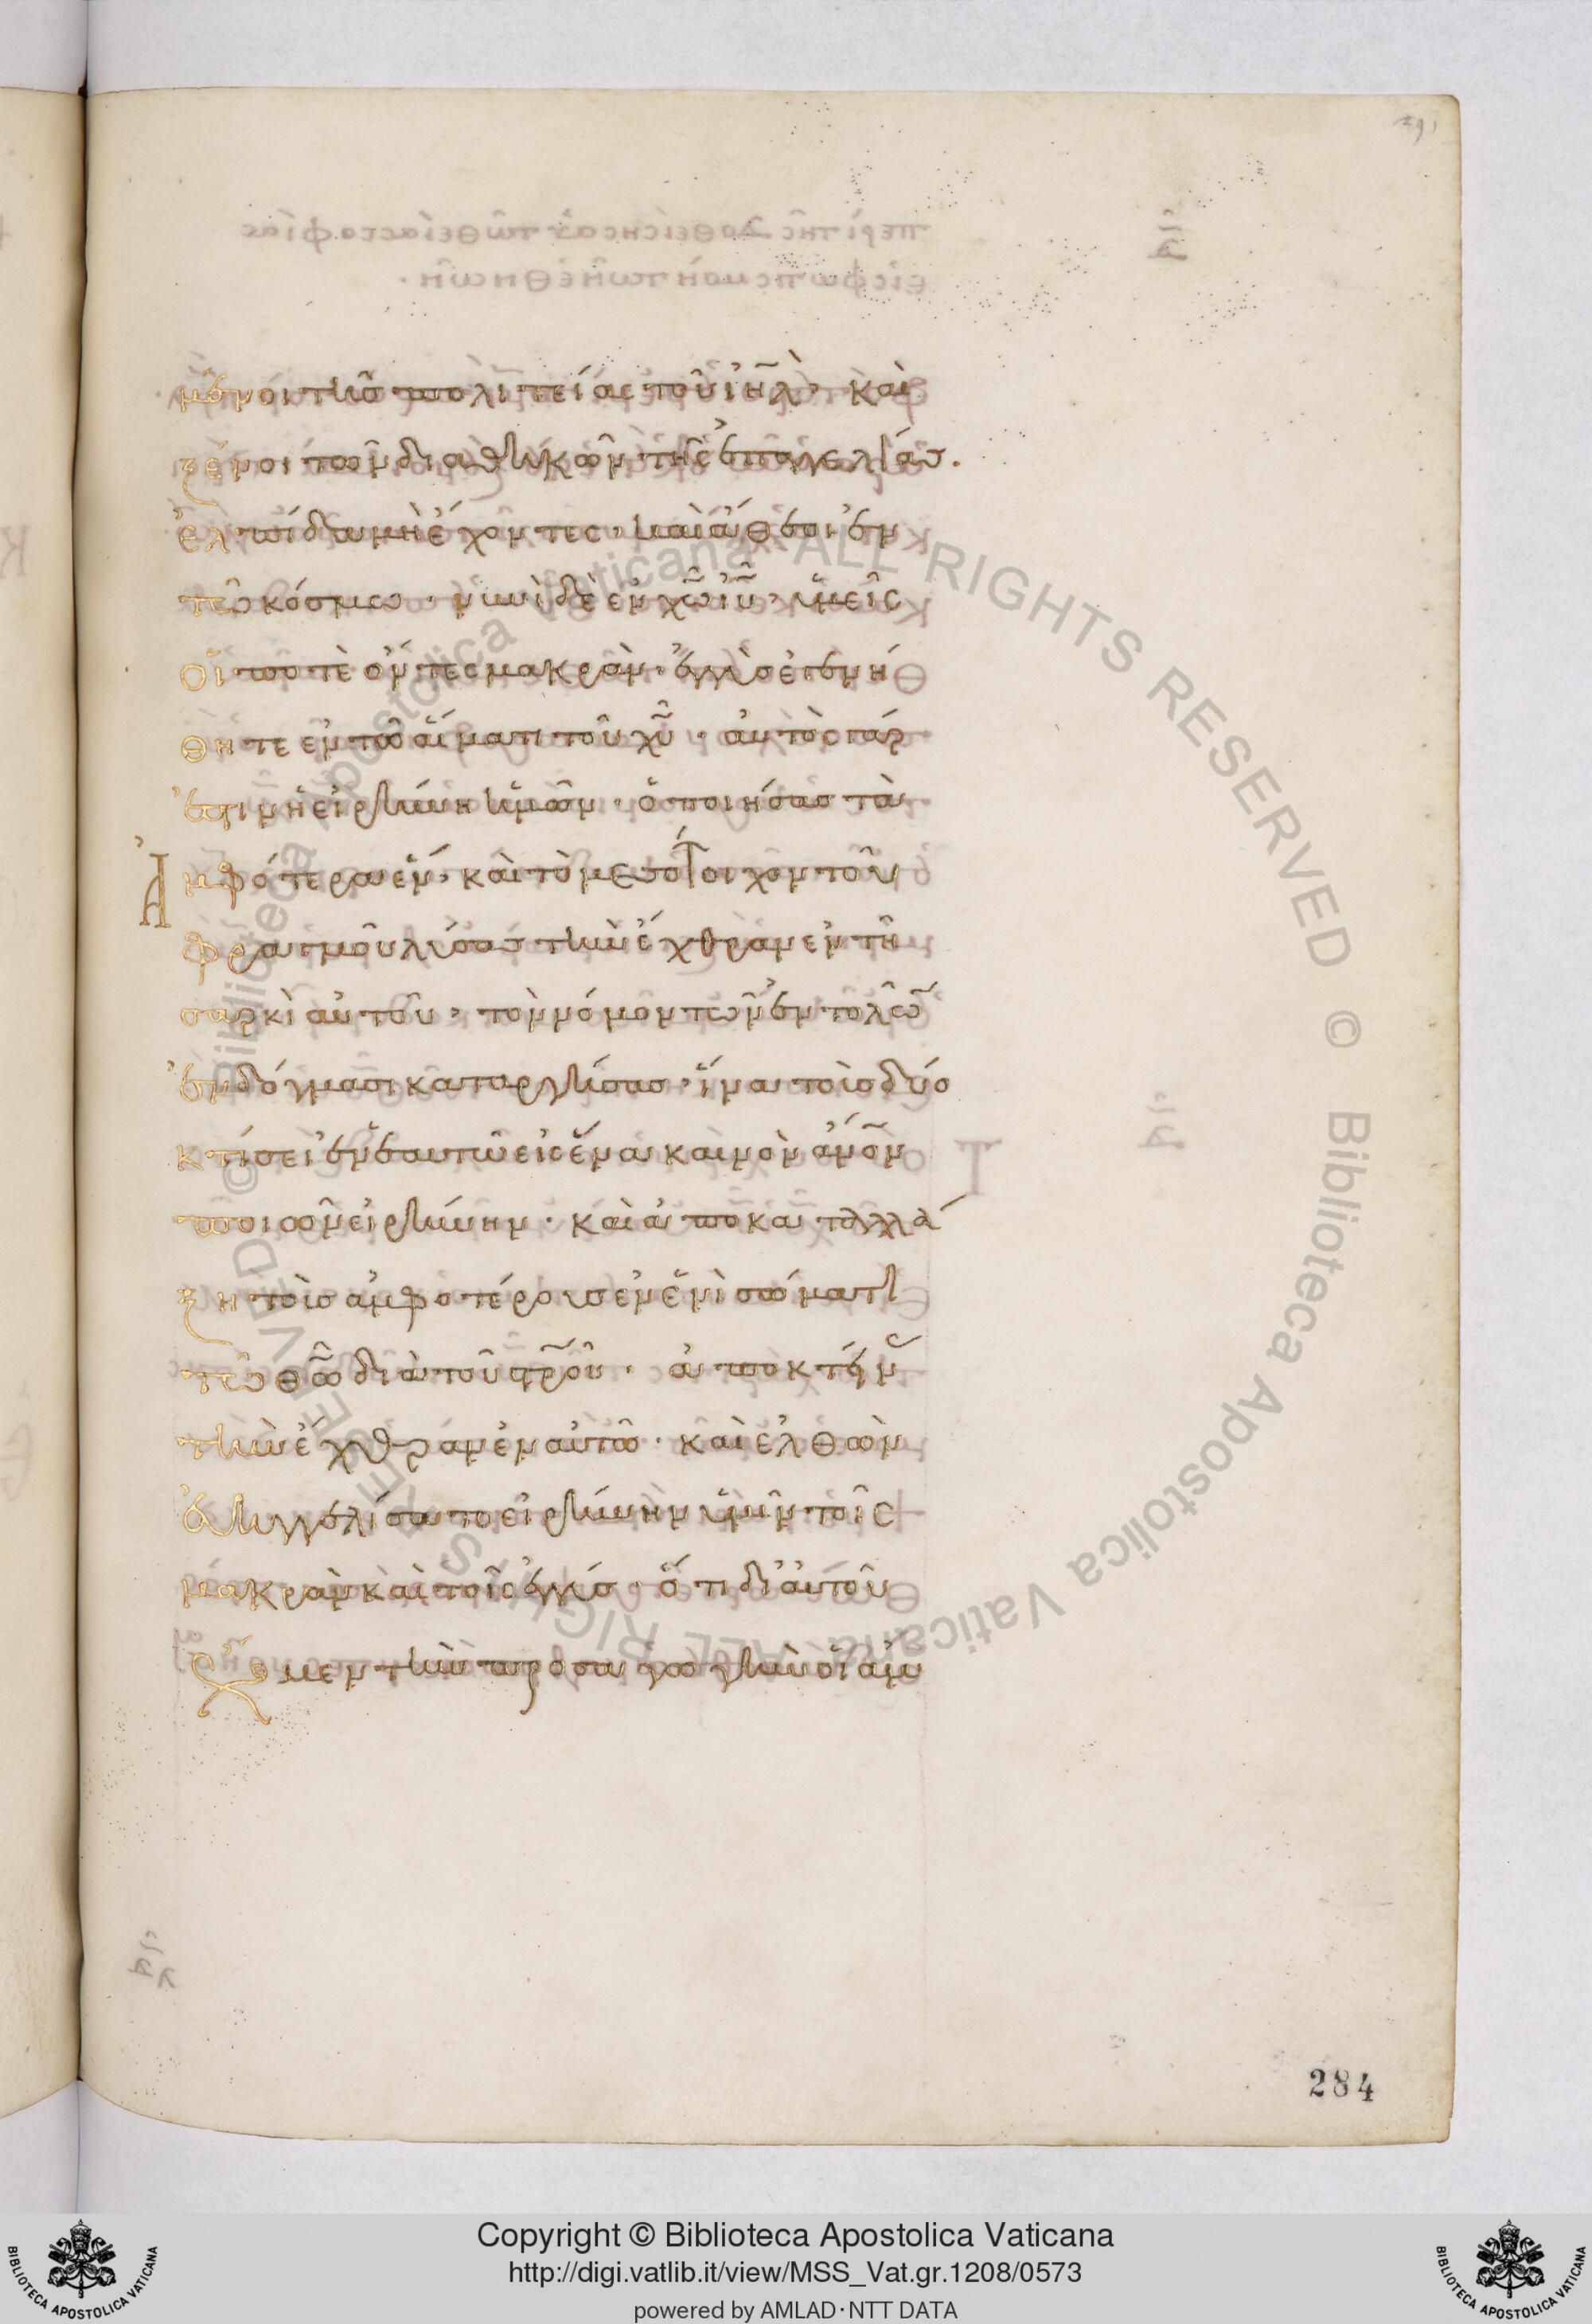 μένοι τῆς πολιτείας τοῦ ἰη̅λ· καὶ
ξένοι τῶν διαθηκῶν τῆς ἐπαγγελίας.
ἐλπίδα μὴ ἔχοντες· καὶ ἄθεοι ἐν
τῶ κόσμω· νυνὶ δὲ ἐν χ̅ω ἰ̅υ· ὑμεῖς
οἵ ποτὲ ὄντες μακρὰν· ἐγγὺς ἐγενή
θητε ἐν τῶ αἵματι τοῦ χ̅υ· αὐτὸς γάρ
ἐστιν ἡ εἰρήνη ἡμῶν· ὁ ποιήσας τὰ
ἀμφότερα ἕν· καὶ τὸ μεσότοιχον τοῦ
φραγμοῦ λύσας τὴν ἔχθραν ἐν τῆ
σαρκὶ αὐτοῦ· τὸν νόμον τῶν ἐντολῶ
ἐν δόγμασι καταργήσας· ἵνα τοὺς δύο
κτίσει ἐν ἑαυτῶ εἰς ἕνα καινὸν ἄν̅ον
ποιῶν εἰρήνην· καὶ ἀποκαταλλά
ξη τοὺς ἀμφοτέρους ἐν ἑνὶ σώματι
τῶ θ̅ω διὰ τοῦ στ̅ροῦ· ἀποκτείνας
τὴν ἔχθραν ἐν αὐτῶ· καὶ ἐλθὼν
εὐηγγελίσατο εἰρήνην ὑμῖν τοῖς
μακρὰν καὶ τοῖς ἐγγύς· ὅτι δι' αὐτοῦ
ἔχομεν τὴν προσαγωγὴν οἱ ἀμ
284
Copyright © Biblioteca Apostolica Vaticana
http://digi.vatlib.it/view/MSS_Vat.gr.1208/0573
powered by AMLAD·NTT DATA
© Biblioteca Apostolica Vaticana ALL RIGHTS RESERVED © Biblioteca Apostolica Vaticana ALL RIGHTS RESERVED
BIBLIOTECA APOSTOLICA VATICANA
BIBLIOTECA APOSTOLICA VATICANA